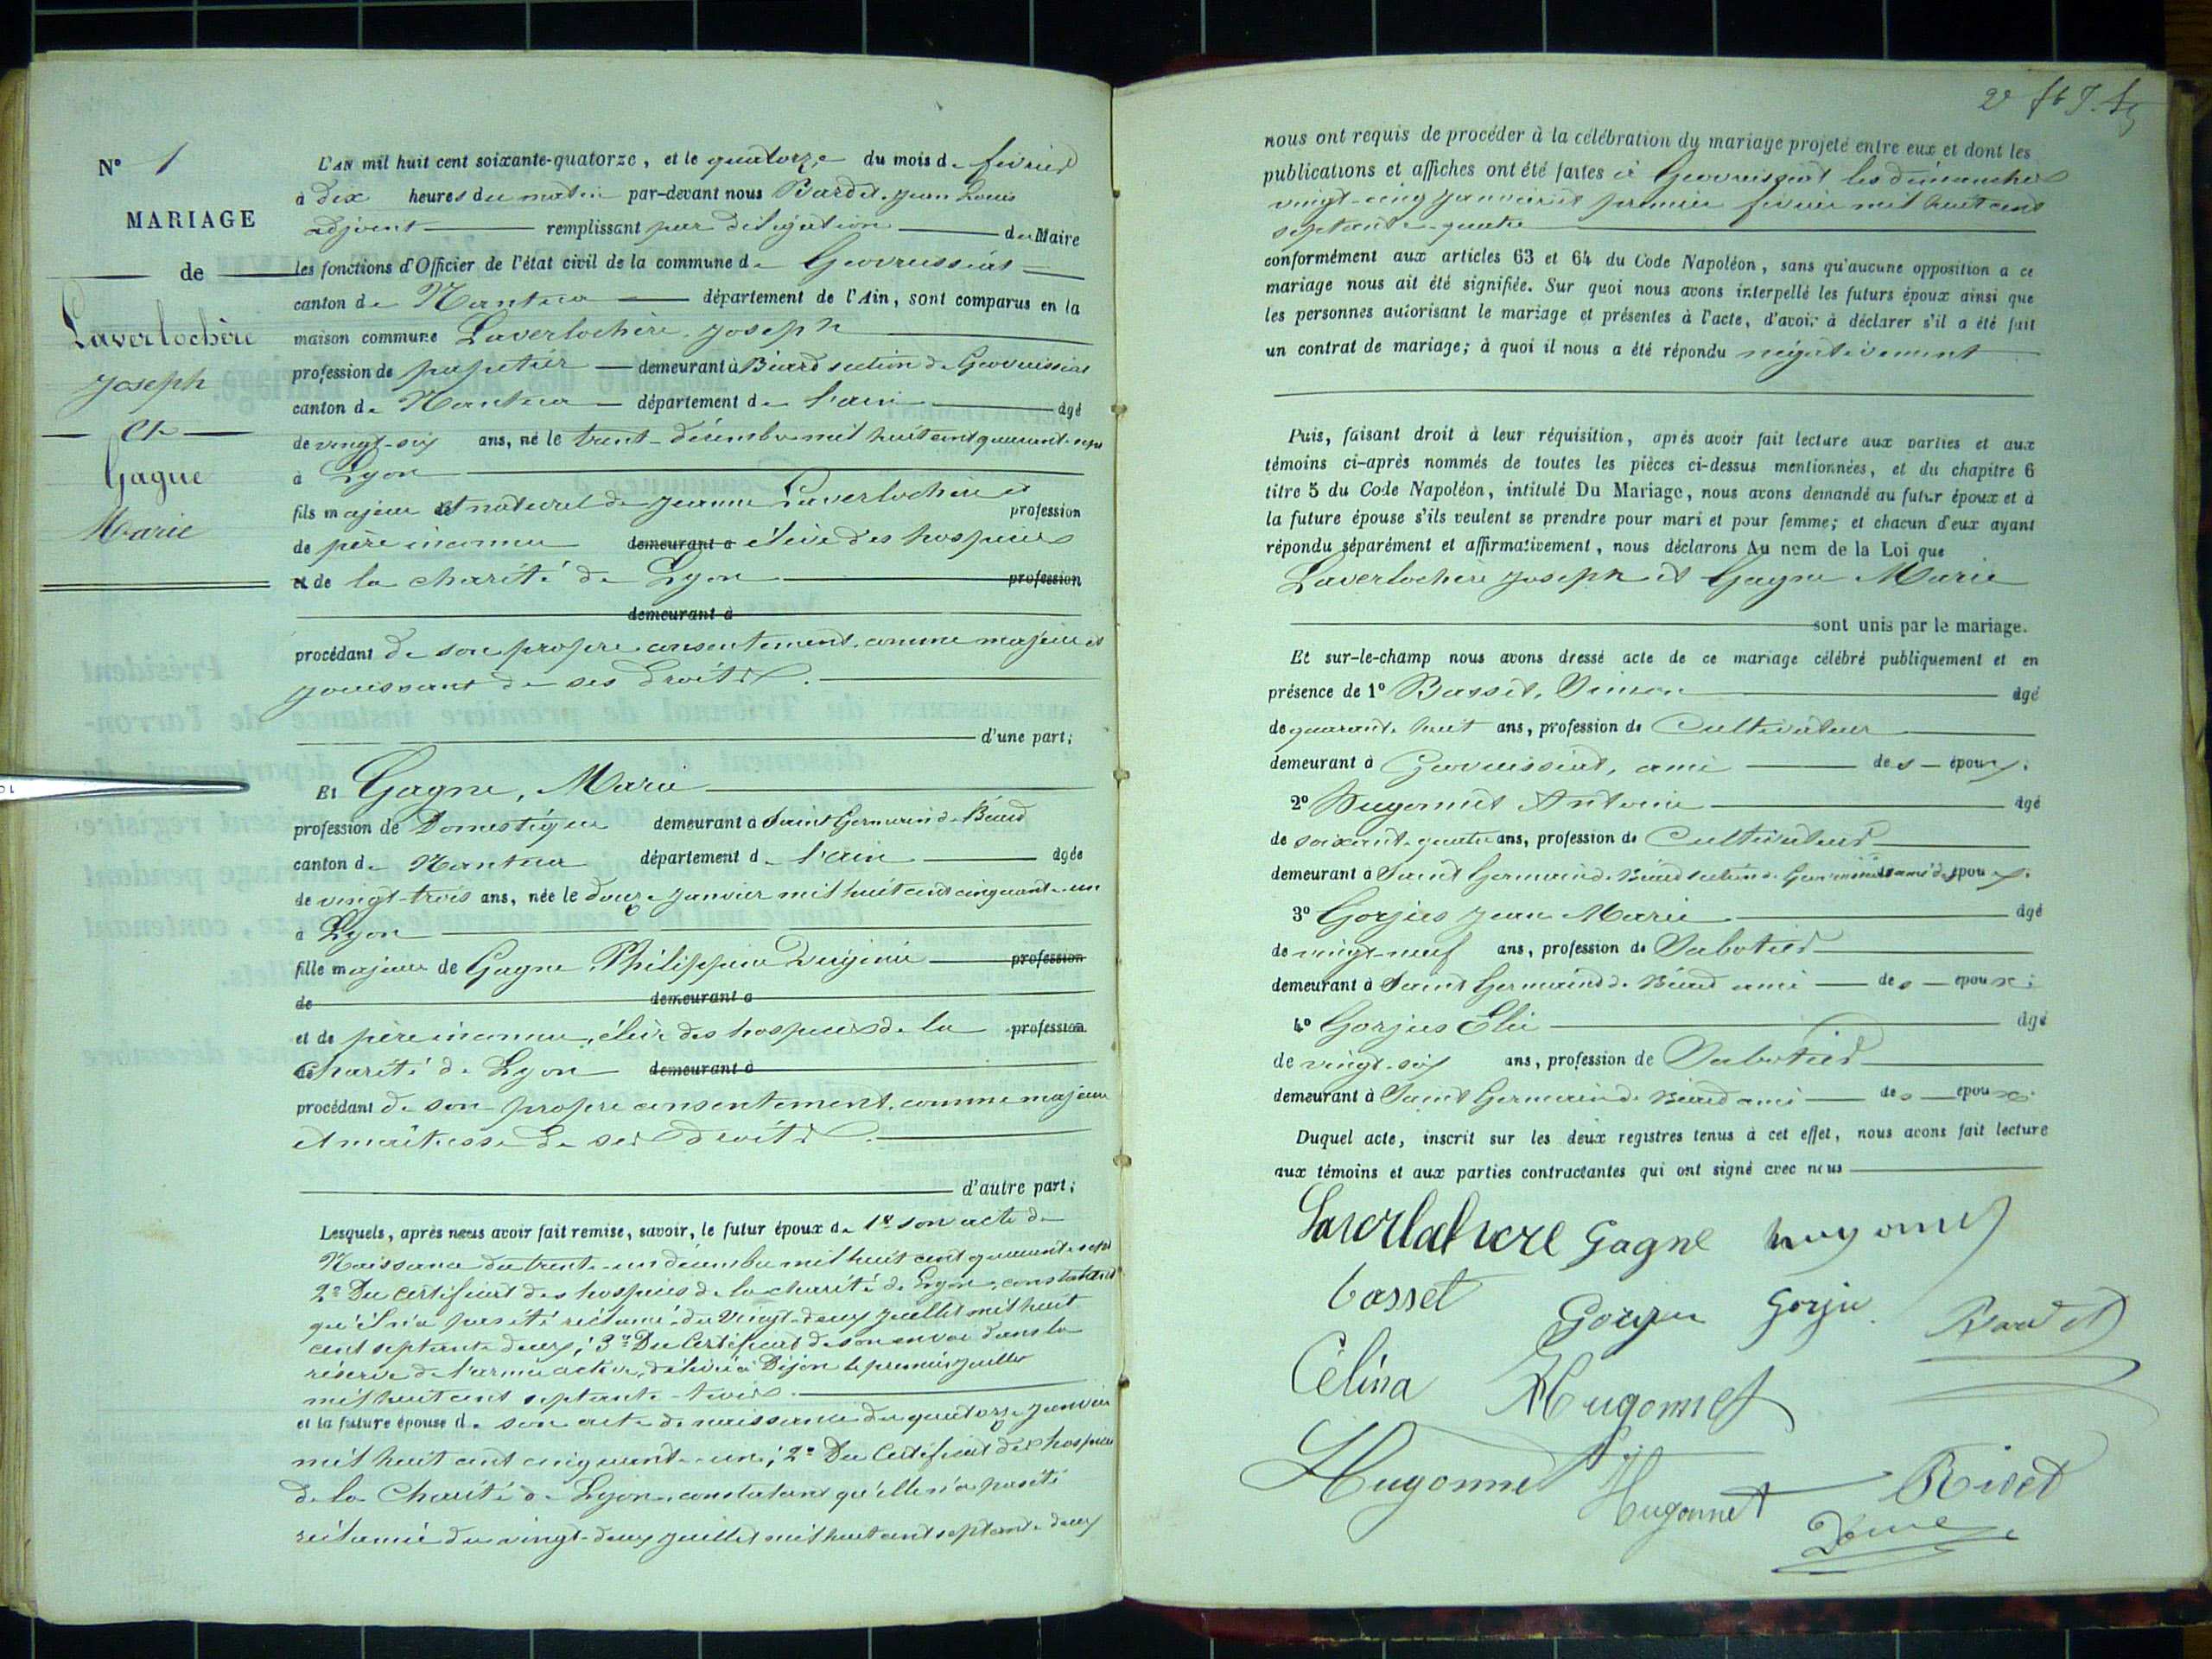 N° 1
MARIAGE
de
Laverlochère
Joseph
et
Gagne
Marie
L'AN mil huit cent soixante-quatorze, et le quatorze du mois de février
à dix heures du matin par-devant nous Bardet, Jean Louis
adjoint remplissant par délégation du Maire
les fonctions d'Officier de l'état civil de la commune de Géovreissiat
canton de Nantua département de l'Ain, sont comparus en la
maison commune Laverlochère, Joseph
profession de papetier demeurant à Béard section de Géovreissiat
canton de Nantua département de l'ain âgé
de vingt-six ans, né le trente décembre mil huit cent quarante-sept
à Lyon
fils majeur et naturel de Jeanne Laverlochère et profession
de père inconnu demeurant à élève des hospices
et de la charité de Lyon profession
demeurant à
procédant de son propre consentement, comme majeur et
jouissant de ses droits.
d'une part;
Et Gagne, Marie
profession de Domestique demeurant à Saint Germain de Béard
canton de Nantua département de l'ain âgée
de vingt-trois ans, née le douze janvier mil huit cent cinquante-un
à Lyon
fille majeure de Gagne, Philippine Virginie profession
de demeurant à
et de père inconnu, élève des hospices de la profession
de charité de Lyon demeurant à
procédant de son propre consentement, comme majeure
et maîtresse de ses droits
d'autre part;
Lesquels, après nous avoir fait remise, savoir, le futur époux de 1° son acte de
Naissance du trente-un décembre mil huit cent quarante-sept
2° Du certificat des hospices de la charité de Lyon, constatant
qu'il n'a pas été réclamé, du vingt-deux juillet mil huit
cent septante deux; 3° Du Certificat de son envoi dans la
réserve de l'armée active, délivré à Dijon le premier juillet
mil huit cent septante-trois.
et la future épouse de son acte de naissance du quatorze janvier
mil huit cent cinquante-un; 2° Du Certificat des hospices
de la Charité de Lyon, constatant qu'elle n'a pas été
réclamée du vingt-deux juillet mil huit cent septante deux
nous ont requis de procéder à la célébration du mariage projeté entre eux et dont les
publications et affiches ont été faites à Géovreissiat les dimanches
vingt-cinq janvier et premier février mil huit cent
septante-quatre
conformément aux articles 63 et 64 du Code Napoléon, sans qu'aucune opposition a ce
mariage nous ait été signifiée. Sur quoi nous avons interpellé les futurs époux ainsi que
les personnes autorisant le mariage et présentes à l'acte, d'avoir à déclarer s'il a été fait
un contrat de mariage; à quoi il nous a été répondu négativement
Puis, faisant droit à leur réquisition, après avoir fait lecture aux parties et aux
témoins ci-après nommés de toutes les pièces ci-dessus mentionnées, et du chapitre 6
titre 5 du Code Napoléon, intitulé Du Mariage, nous avons demandé au futur époux et à
la future épouse s'ils veulent se prendre pour mari et pour femme; et chacun d'eux ayant
répondu séparément et affirmativement, nous déclarons Au nom de la Loi que
Laverlochère Joseph et Gagne Marie
sont unis par le mariage.
Et sur-le-champ nous avons dressé acte de ce mariage célébré publiquement et en
présence de 1° Basset, Simon âgé
de quarante huit ans, profession de Cultivateur
demeurant à Géovreissiat, ami des époux.
2° Hugonnet Antoine âgé
de soixante-quatre ans, profession de Cultivateur
demeurant à Saint Germain de Béard section de Géovreissiat ami des époux.
3° Gorjus Jean Marie âgé
de vingt-neuf ans, profession de Sabotier
demeurant à Saint Germain de Béard ami des époux;
4° Gorjus Elie âgé
de vingt-six ans, profession de Sabotier
demeurant à Saint Germain de Béard ami des époux
Duquel acte, inscrit sur les deux registres tenus à cet effet, nous avons fait lecture
aux témoins et aux parties contractantes qui ont signé avec nous
Gagne
basset
Gorju Bardet
Célina Hugonnet
Hugonnet Hugonnet Rivet